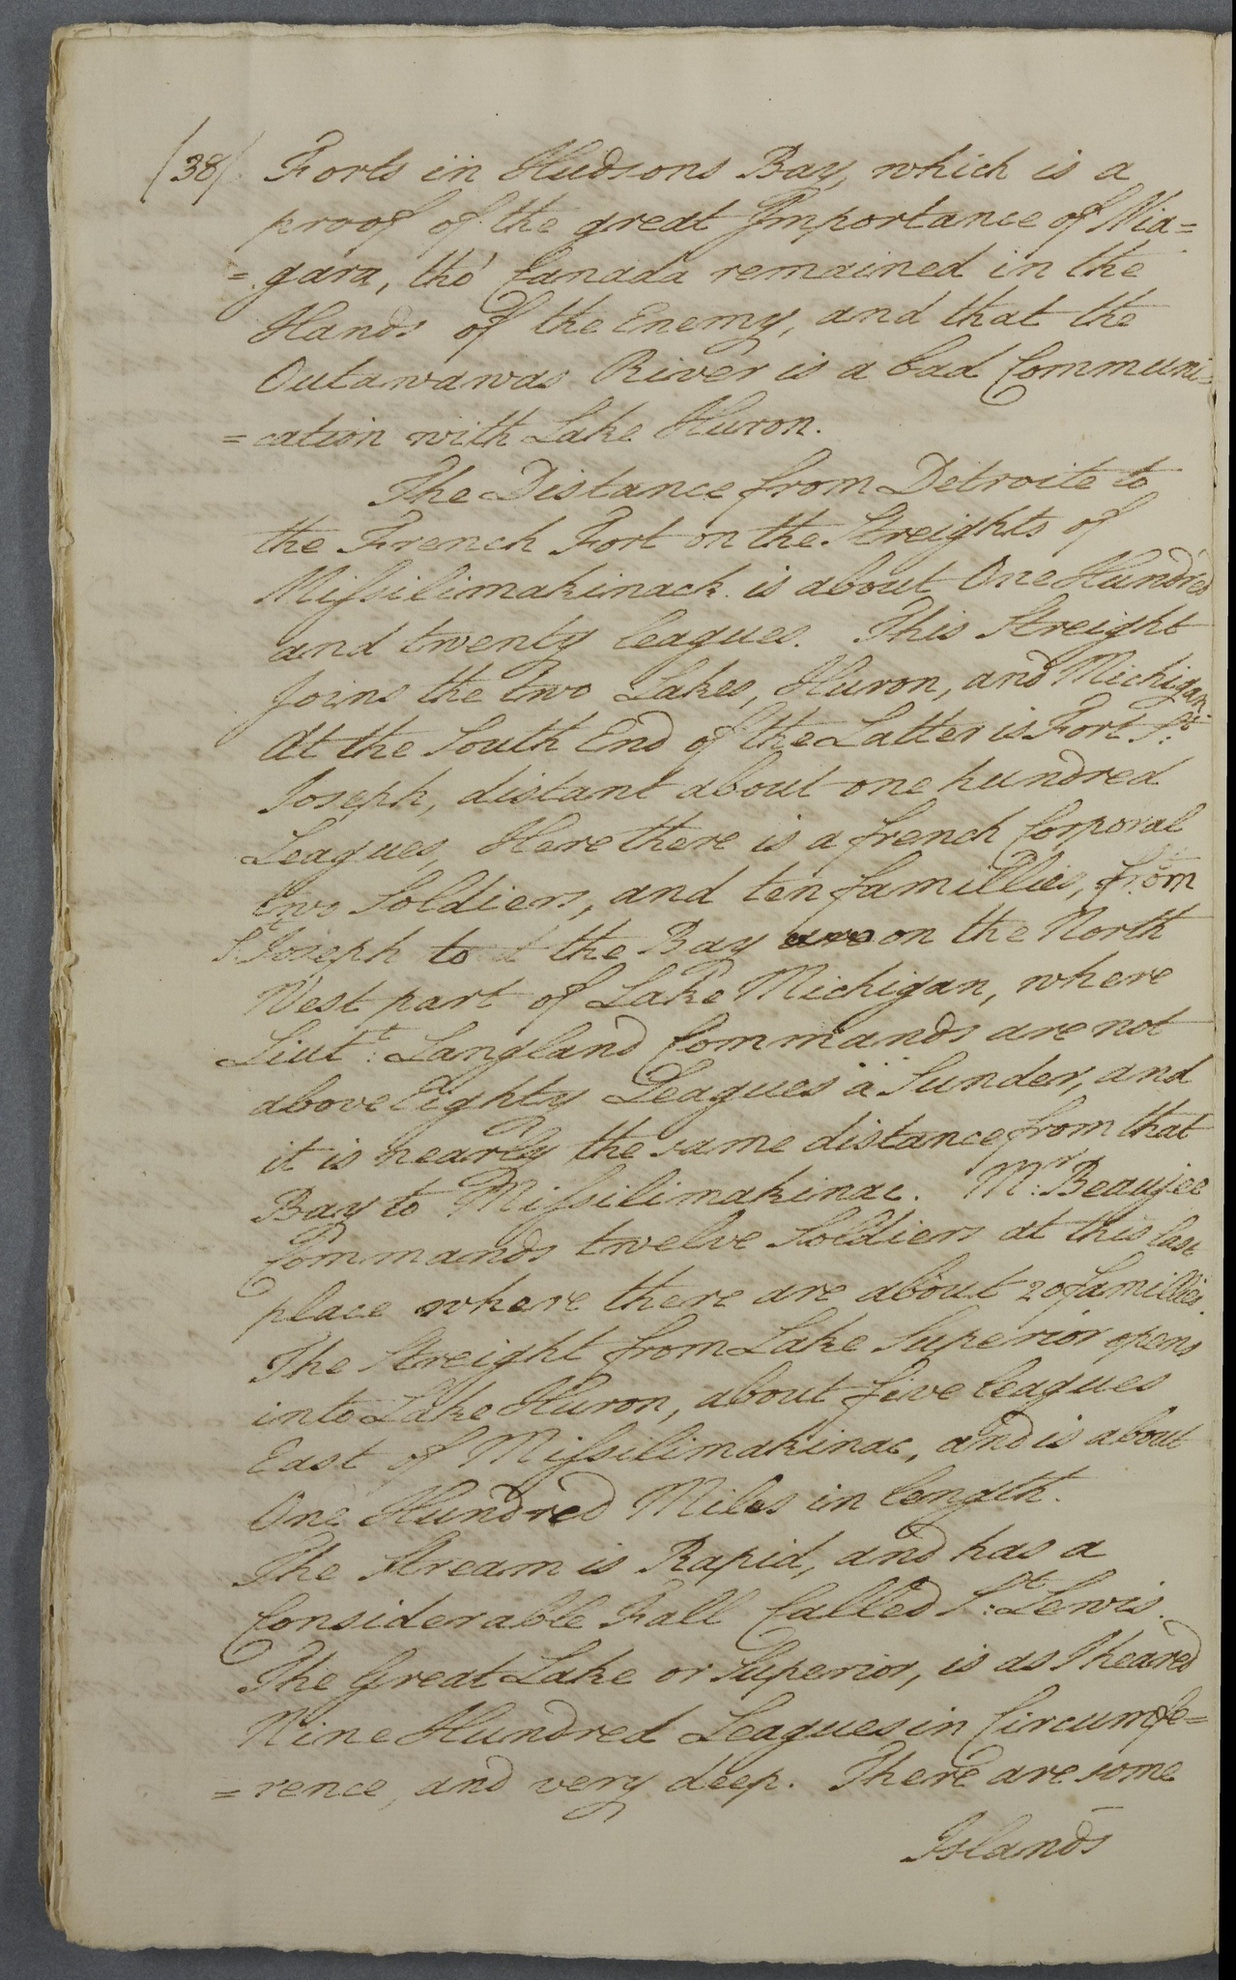 (38) Forts in Hudsons Bay, which is a
proof of the great Importance of Nia=
=gara, tho' Canada remained in the
Hands of the Enemy, and that the
Outawawas River is a bad Communi=
=cation with Lake Huron.
The Distance from Detroite to
the French Fort on the Streights of
Missilimakinack is about One Hundred
and twenty leagues. This Streight
Joins the two Lakes, Huron, and Michigan.
At the South End of the Latter is Fort St.
Joseph, distant about one hundred
Leagues, Here there is a french Corporal
two Soldiers, and ten famillies, from
St Joseph to the Bay on the North
West part of Lake Michigan, where
Liut.t: Langland Commands are not
above Eighty Leagues a Sunder, and
it is nearly the same distance from that
Bay to Missilimakinac. Mr: Beaujee
Commands twelve Soldiers at this last
place where there are about 20 famillies.
The Streight from Lake Superior opens
into Lake Huron, about five leagues
East of Missilimakinac, and is about
One Hundred Miles in length.
The Stream is Rapid, and has a
Considerable Fall Called St: Lewis.
The Great Lake or Superior, is as I heared
Nine Hundred Leagues in Circumfe=
=rence, and very deep. There are some
Islands